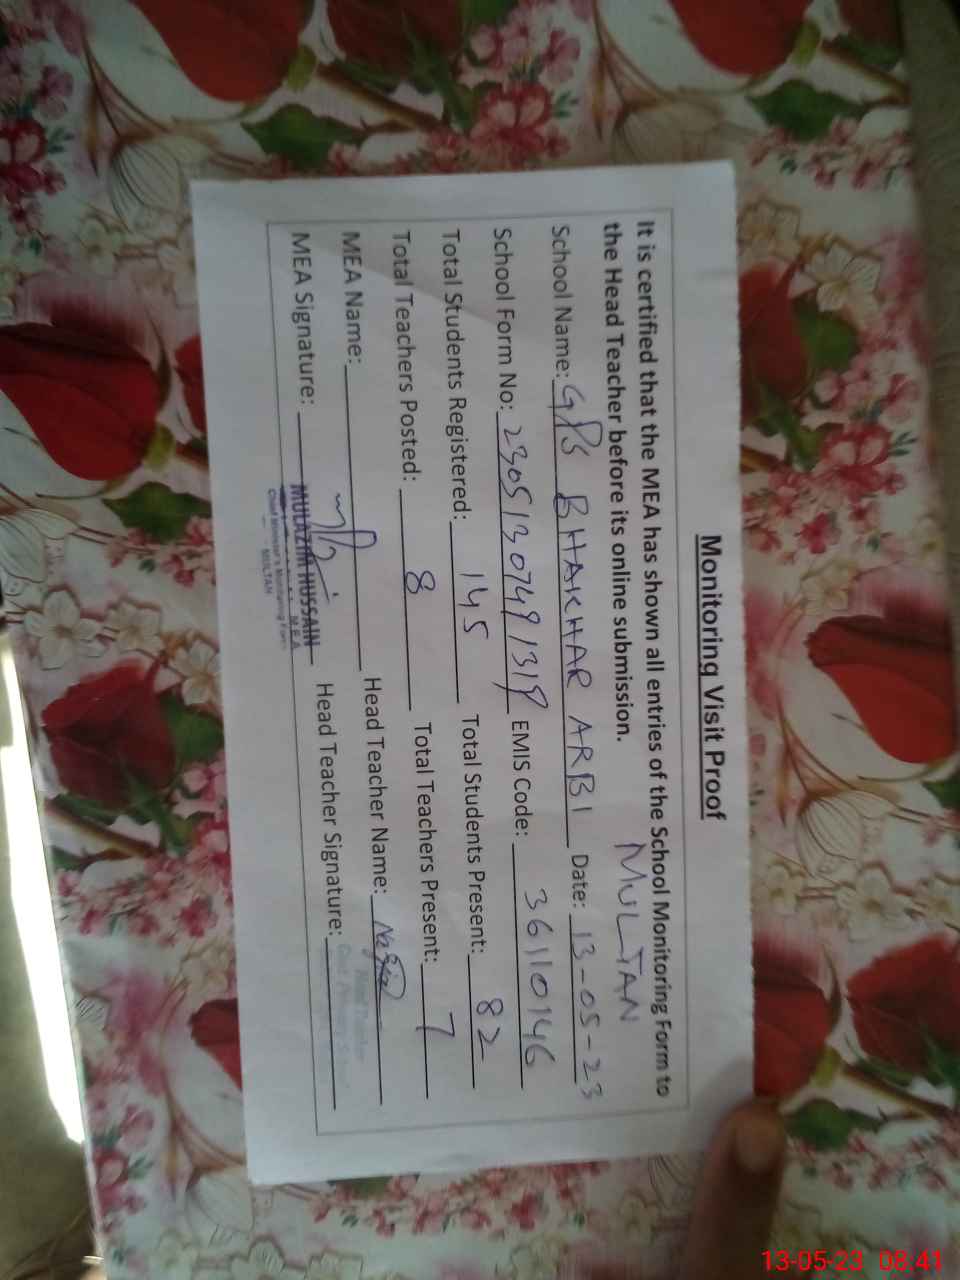 Monitoring Visit Proof
It is certified that the MEA has shown all entries of the School Monitoring Form to
the Head Teacher before its online submission.
MULTAN
School Name: GPS BHAKHAR ARBI Date: 13-05-23
School Form No: 23051307491319 EMIS Code: 36110146
Total Students Registered: 145 Total Students Present: 82
Total Teachers Posted: 8 Total Teachers Present: 7
MEA Name: Head Teacher Name:
MEA Signature: Head Teacher Signature:
MULAZIM HUSSAIN
M.E.A
Chief Minister's Monitoring Force
MULTAN
Head Teacher
13-05-23 08:41